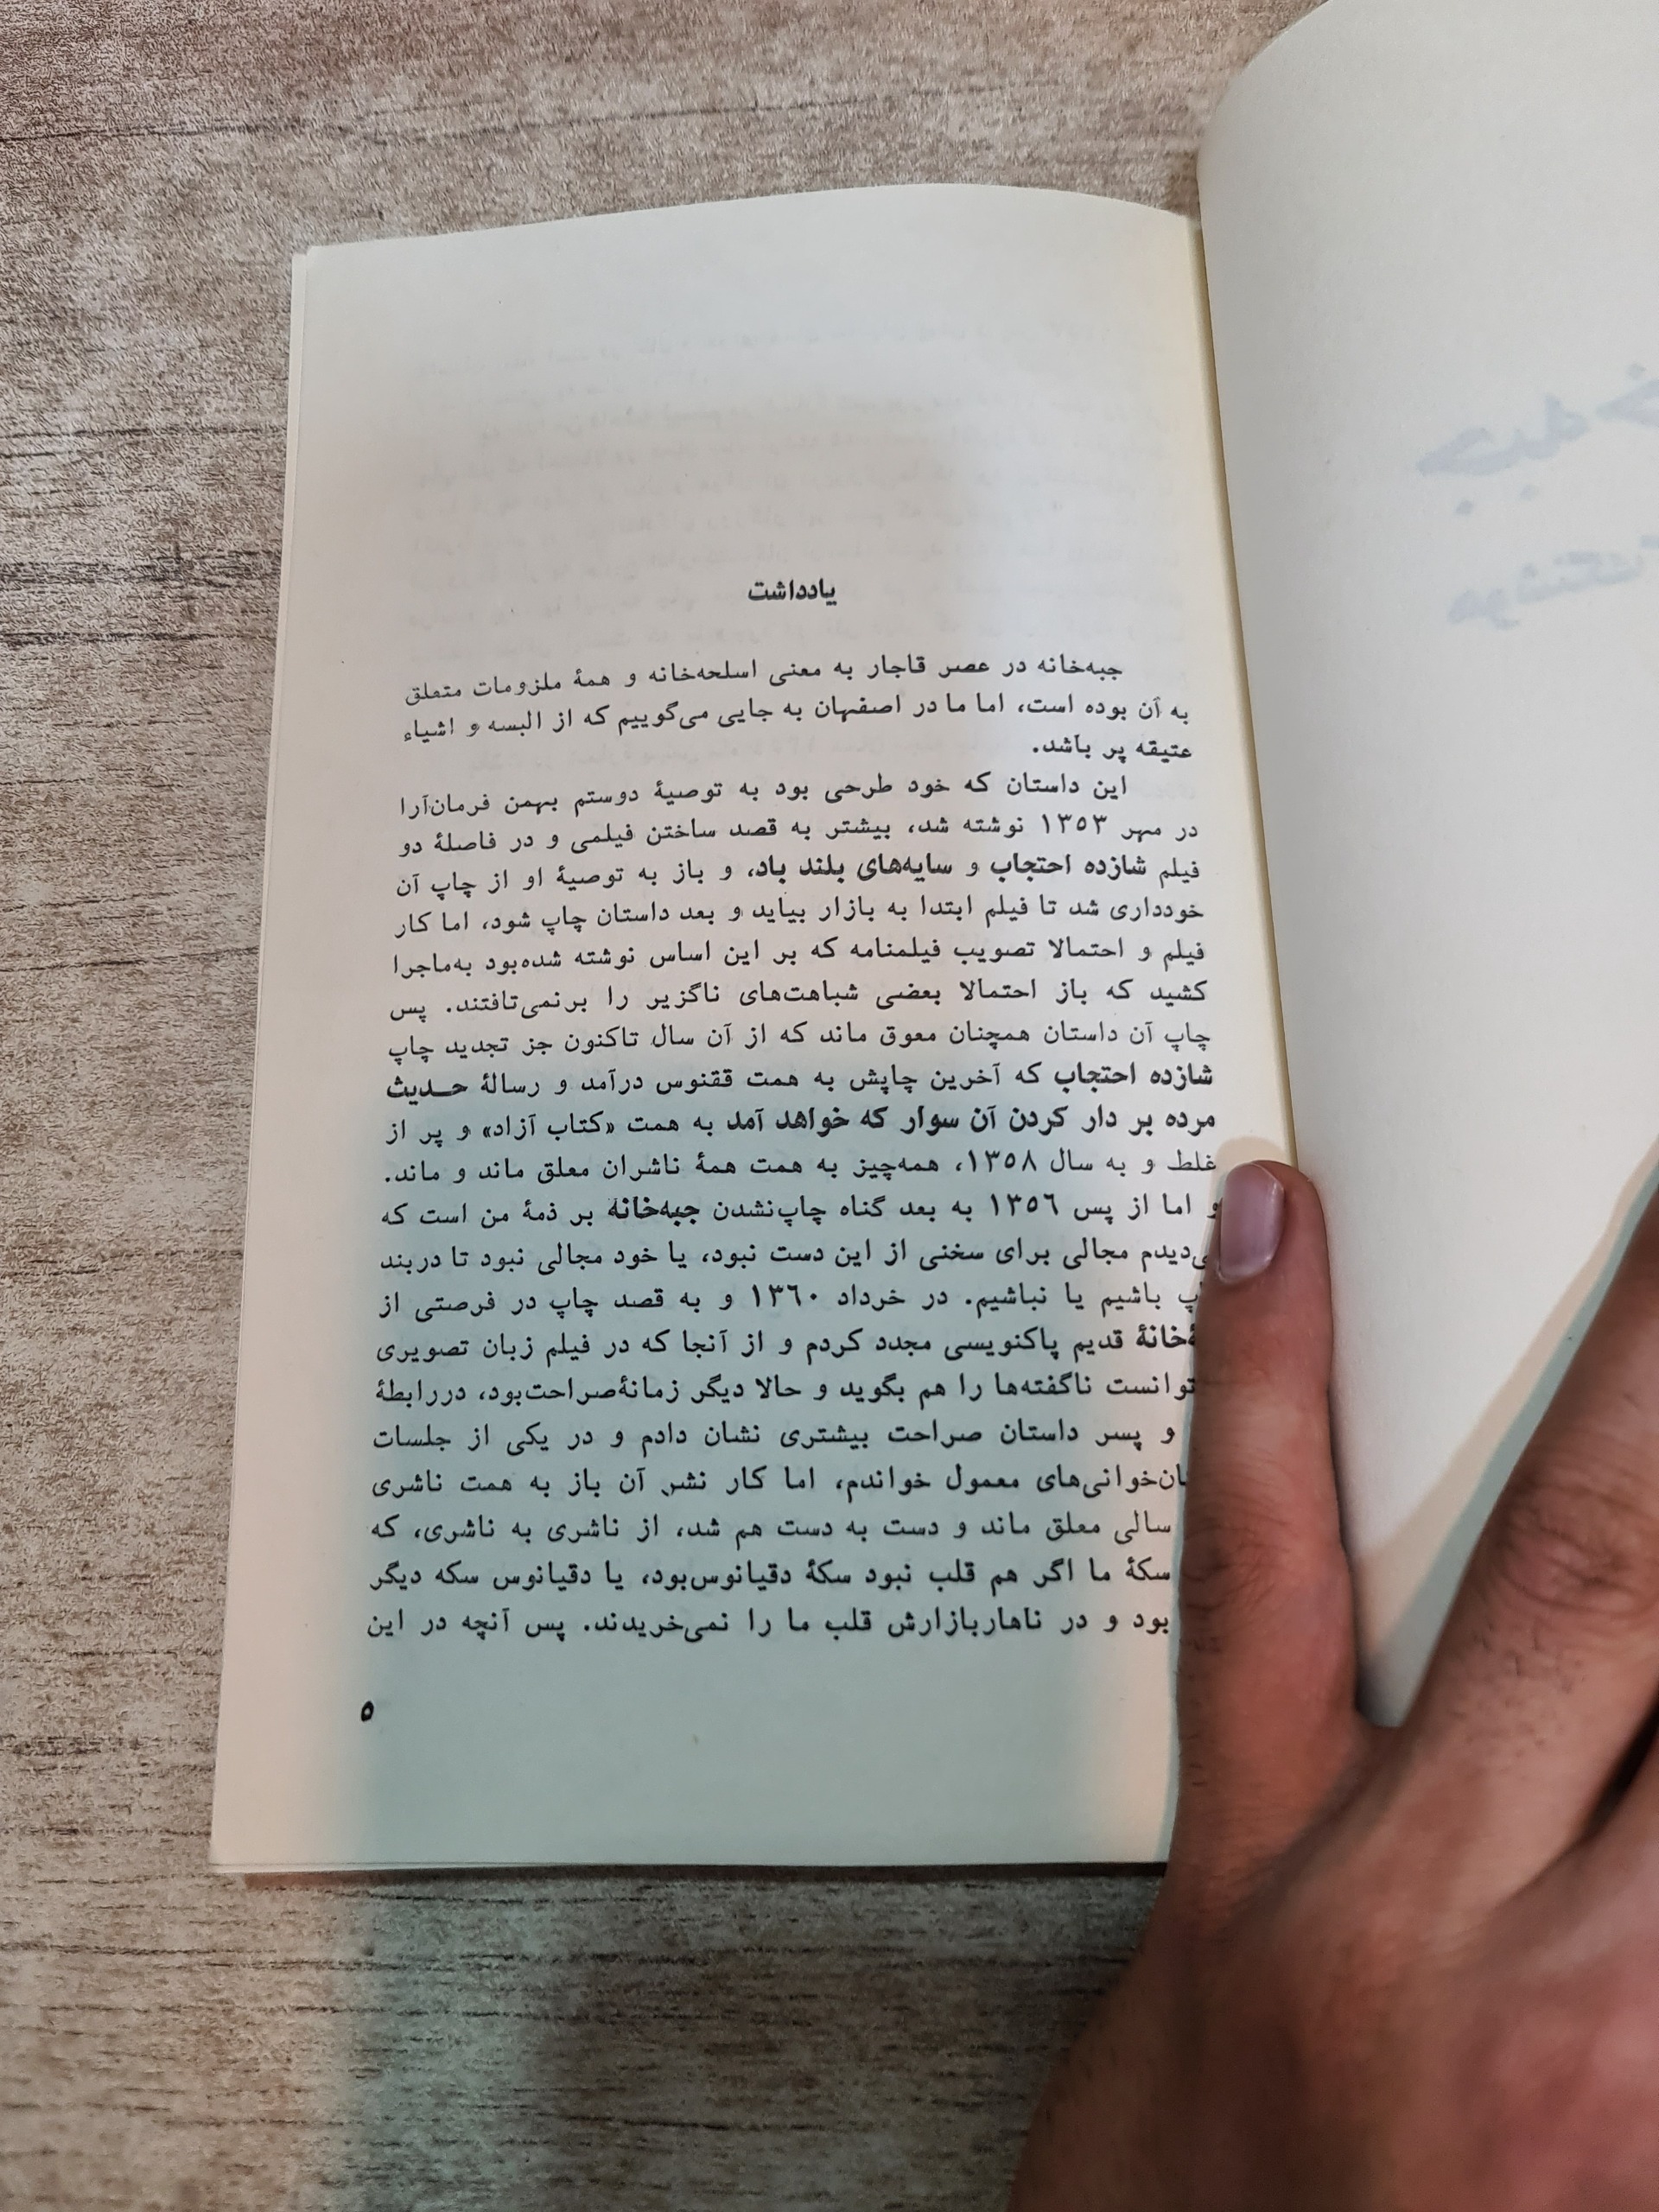 یادداشت
جبه‌خانه در عصر قاجار به معنی اسلحه‌خانه و همهٔ ملزومات متعلق
به آن بوده است، اما ما در اصفهان به جایی می‌گوییم که از البسه و اشیاء
عتیقه پر باشد.
این داستان که خود طرحی بود به توصیهٔ دوستم بهمن فرمان‌آرا
در مهر ۱۳۵۳ نوشته شد، بیشتر به قصد ساختن فیلمی و در فاصلهٔ دو
فیلم شازده احتجاب و سایه‌های بلند باد، و باز به توصیهٔ او از چاپ آن
خودداری شد تا فیلم ابتدا به بازار بیاید و بعد داستان چاپ شود، اما کار
فیلم و احتمالا تصویب فیلمنامه که بر این اساس نوشته شده‌بود به‌ماجرا
کشید که باز احتمالا بعضی شباهت‌های ناگزیر را برنمی‌تافتند. پس
چاپ آن داستان همچنان معوق ماند که از آن سال تاکنون جز تجدید چاپ
شازده احتجاب که آخرین چاپش به همت ققنوس درآمد و رسالهٔ حـدیث
مرده بر دار کردن آن سوار که خواهد آمد به همت «کتاب آزاد» و پر از
غلط و به سال ۱۳۵۸، همه‌چیز به همت همهٔ ناشران معلق ماند و ماند.
و اما از پس ۱۳۵٦ به بعد گناه چاپ‌نشدن جبه‌خانه بر ذمهٔ من است که
ی‌دیدم مجالی برای سخنی از این دست نبود، یا خود مجالی نبود تا دربند
باشیم یا نباشیم. در خرداد ۱۳٦۰ و به قصد چاپ در فرصتی از
خانهٔ قدیم پاکنویسی مجدد کردم و از آنجا که در فیلم زبان تصویری
توانست ناگفته‌ها را هم بگوید و حالا دیگر زمانهٔ‌صراحت‌بود، دررابطهٔ
و پسر داستان صراحت بیشتری نشان دادم و در یکی از جلسات
ان‌خوانی‌های معمول خواندم، اما کار نشر آن باز به همت ناشری
سالی معلق ماند و دست به دست هم شد، از ناشری به ناشری، که
سکهٔ ما اگر هم قلب نبود سکهٔ دقیانوس‌بود، یا دقیانوس سکه دیگر
بود و در ناهاربازارش قلب ما را نمی‌خریدند. پس آنچه در این
۵